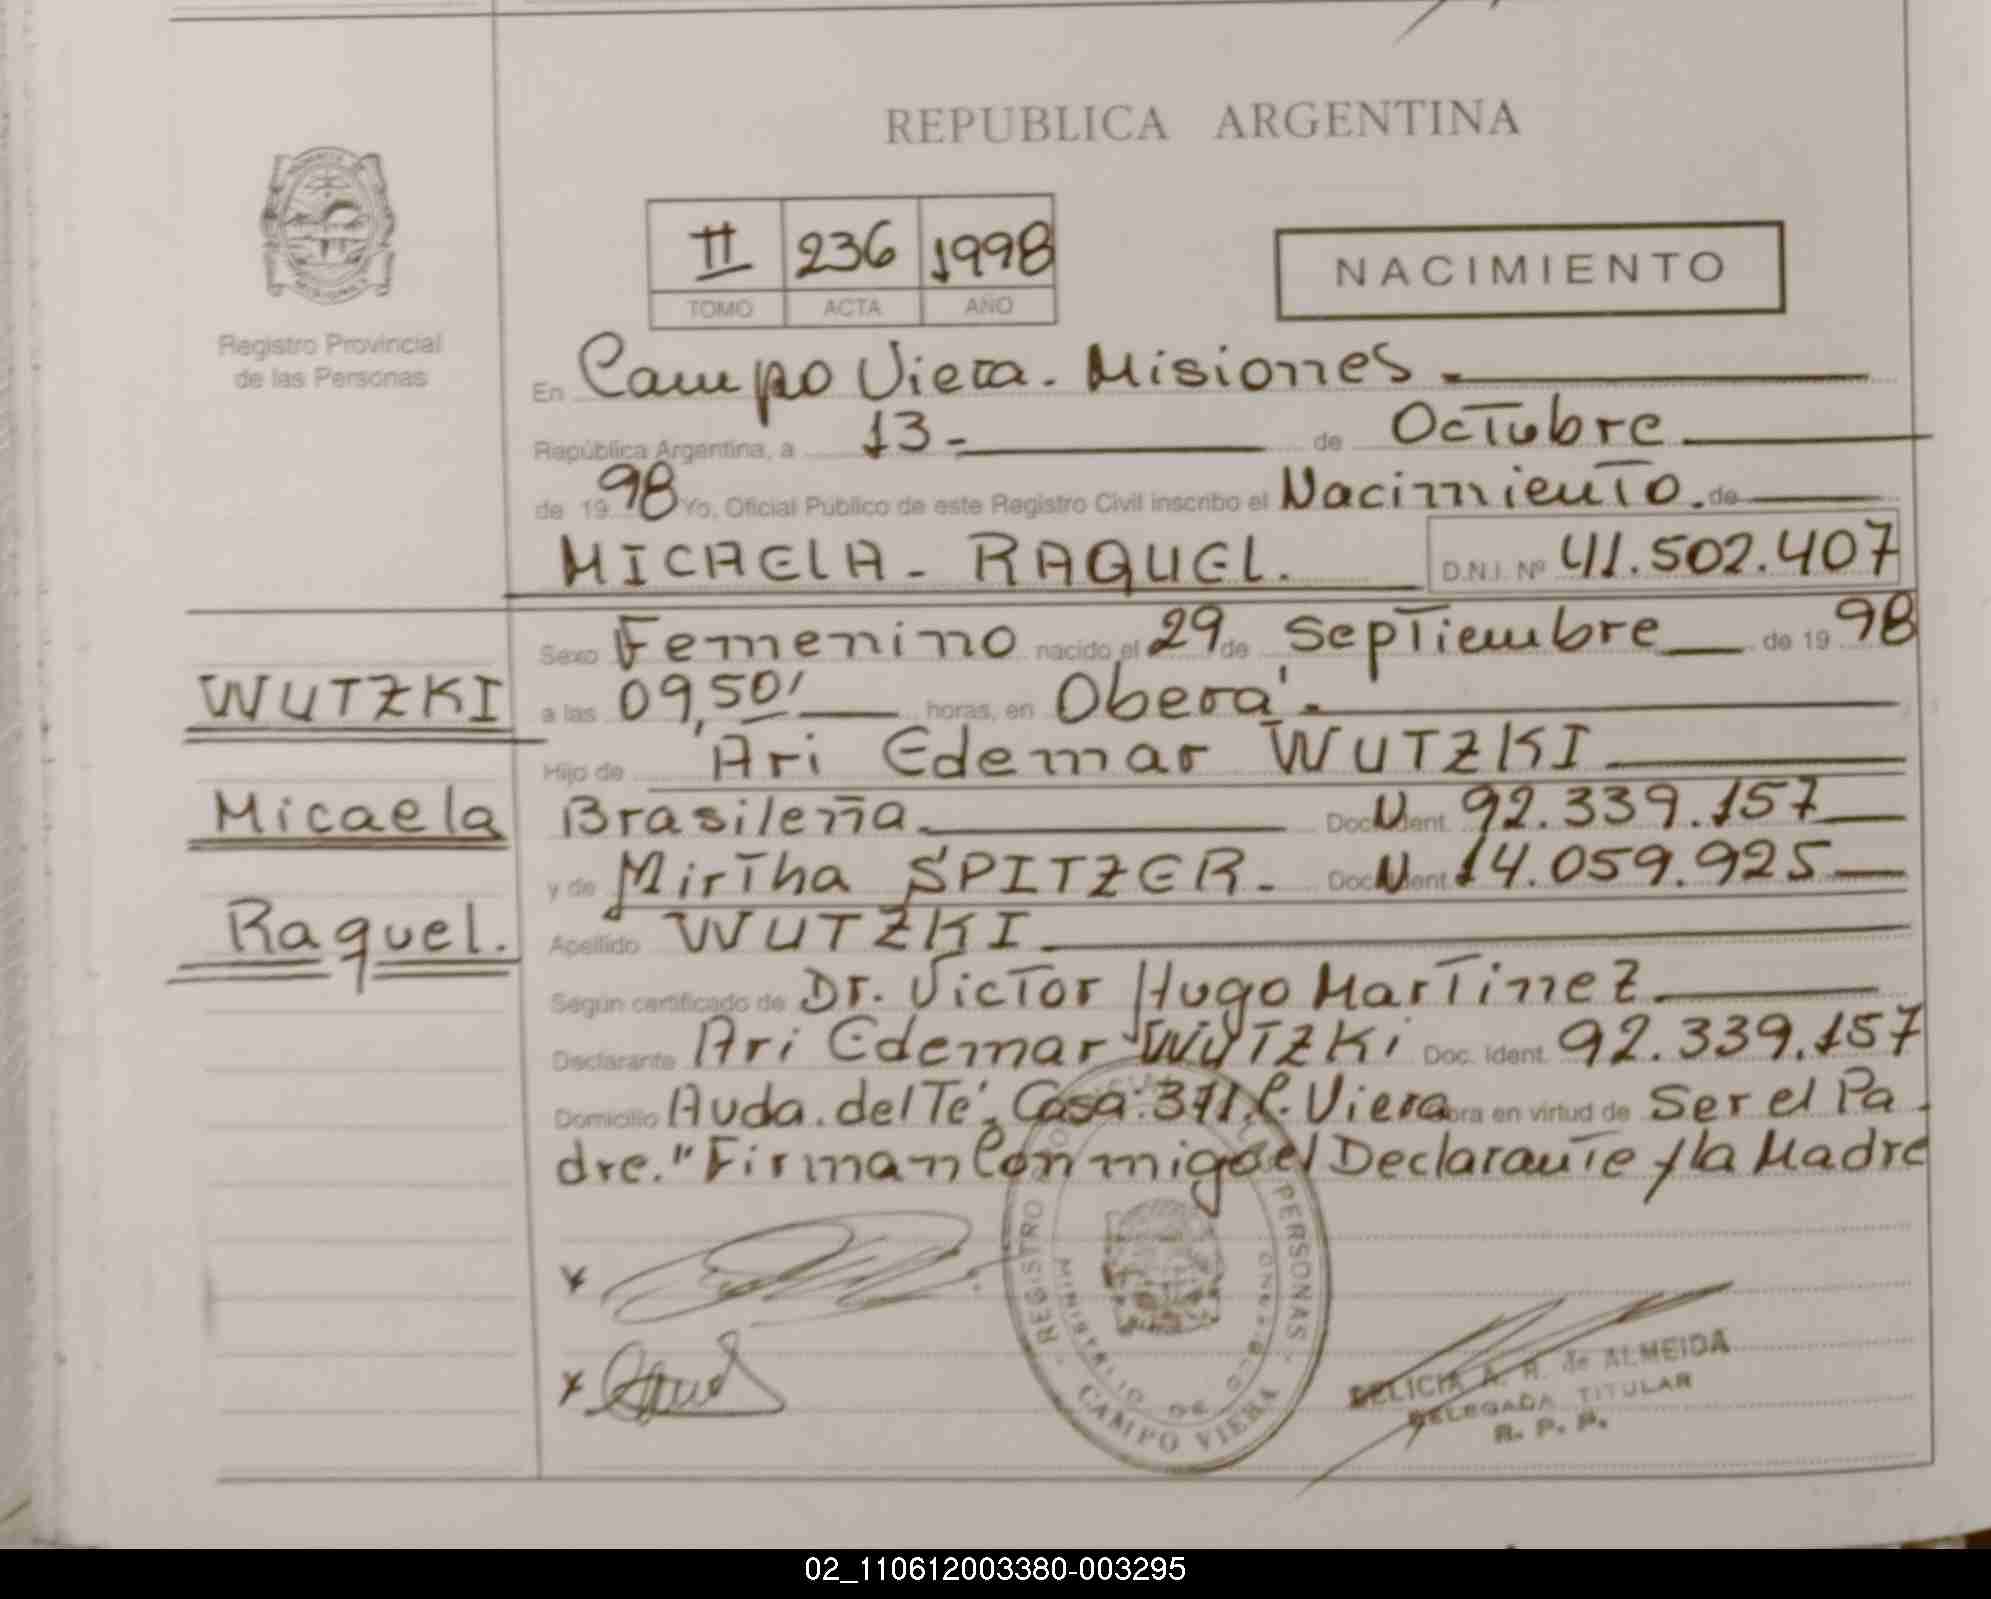 REPUBLICA ARGENTINA
II 236 1998
TOMO ACTA AÑO
NACIMIENTO
Registro Provincial
de las Personas
En Campo Viera. Misiones.
República Argentina, a 13 - de Octubre
de 1998 Yo, Oficial Público de este Registro Civil inscribo el Nacimiento. de
MICAELA - RAQUEL. D.N.I. Nº 41.502.407
Sexo Femenino nacido el 29 de Septiembre de 1998
WUTZKI
a las 09,50' horas, en Oberá.
Hijo de Ari Edemar WUTZKI
Micaela
Brasileña Doc. Ident. 92.339.157
y de Mirtha SPITZER - Doc. Ident. 14.059.925
Raquel.
Apellido WUTZKI
Según certificado de Dr. Victor Hugo Martinez
Declarante Ari Edemar WUTZKi Doc. Ident. 92.339.157
Domicilio Avda. del Té, Casa: 371. C. Viera obra en virtud de Ser el Pa-
dre." Firman Conmigo el Declarante y la Madre
REGISTRO PERSONAS
MINISTERIO DE GOBIERNO
CAMPO VIERA
DELICIA A. R. de ALMEIDA
DELEGADA TITULAR
R. P. P.
02_110612003380-003295